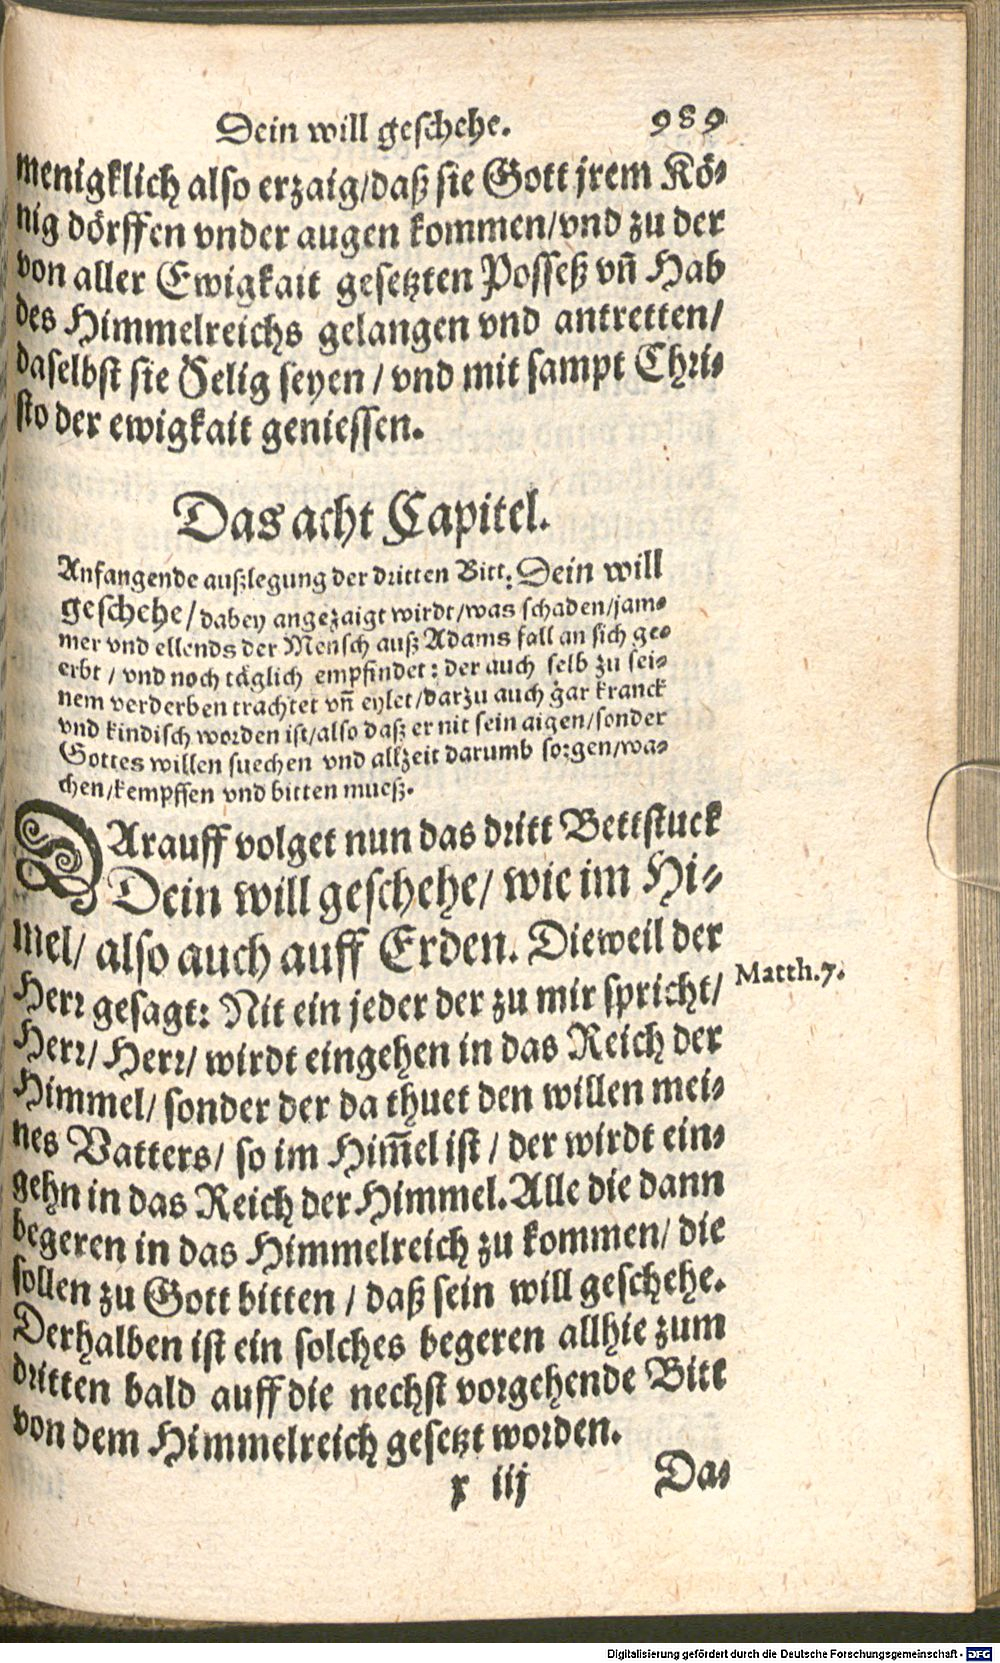 Dein will geschehe. 989
menigklich also erzaig/daß sie Gott jrem Kö-
nig dörffen vnder augen kommen/vnd zu der
von aller Ewigkait gesetzten Posseß vñ Hab
des Himmelreichs gelangen vnd antretten/
daselbst sie Selig seyen / vnd mit sampt Chri-
sto der ewigkait geniessen.
Das acht Capitel.
Anfangende außlegung der dritten Bitt: Dein will
geschehe/ dabey angezaigt wirdt/was schaden/jam-
mer vnd ellends der Mensch auß Adams fall an sich ge-
erbt / vnd noch täglich empfindet: der auch selb zu sei-
nem verderben trachtet vñ eylet/darzu auch gar kranck
vnd kindisch worden ist/also daß er nit sein aigen/sonder
Gottes willen suechen vnd allzeit darumb sorgen/wa-
chen/kempffen vnd bitten mueß.
DArauff volget nun das dritt Bettstuck
Dein will geschehe/ wie im Hi-
mel/ also auch auff Erden. Dieweil der
Herr gesagt: Nit ein jeder der zu mir spricht/
Matth.7.
Herr/ Herr/ wirdt eingehen in das Reich der
Himmel/ sonder der da thuet den willen mei-
nes Vatters/ so im Him̃el ist / der wirdt ein-
gehn in das Reich der Himmel. Alle die dann
begeren in das Himmelreich zu kommen/ die
sollen zu Gott bitten / daß sein will geschehe.
Derhalben ist ein solches begeren allhie zum
dritten bald auff die nechst vorgehende Bitt
von dem Himmelreich gesetzt worden.
x iij Da-
Digitalisierung gefördert durch die Deutsche Forschungsgemeinschaft - DFG